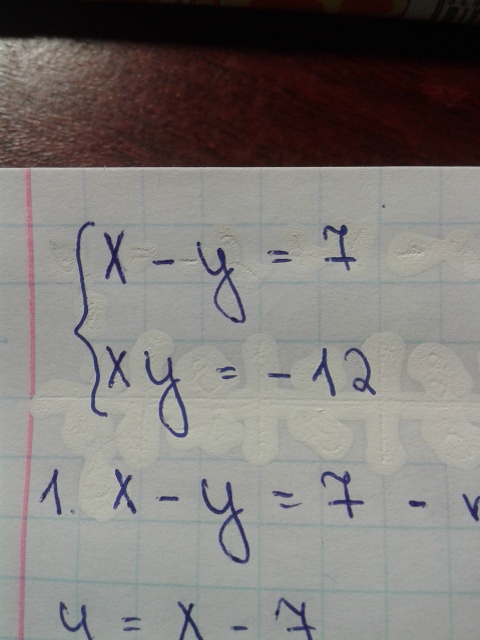 x - y = 7
xy = - 12
1. x - y = 7 -
y = x - 7